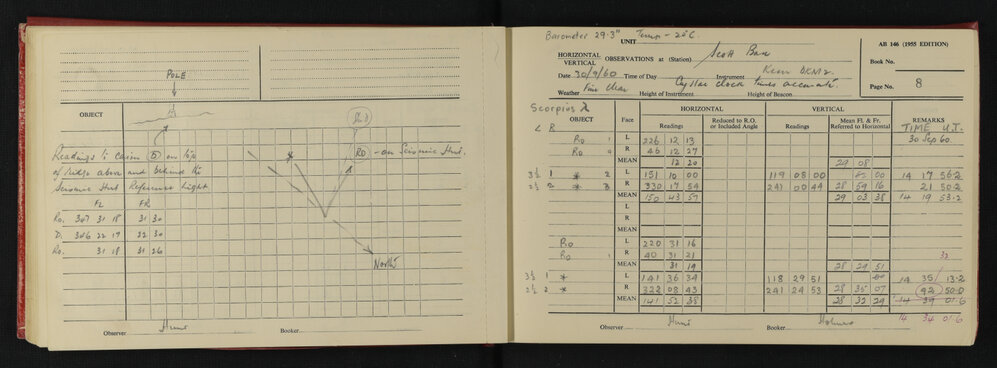 POLE
OBJECT
Readings to cairn on top
of ridge above and behind the
Seismic Hut Reference Light
RO - on Seismic Hut.
FL FR
Ro. 307 31 18 31 30
D. 306 22 19 22 30
Ro. 31 18 31 26
North
Observer Hunt Booker
Barometer 29.3" Temp - 28°C
UNIT
AB 146 (1955 EDITION)
HORIZONTAL
VERTICAL OBSERVATIONS at (Station) Scott Base
Book No.
Date 30/9/60 Time of Day Instrument Kern DKM2
Page No. 8
Weather Fine Clear Height of Instrument Height of Beacon
clock times accurate
Scorpius λ
HORIZONTAL VERTICAL
OBJECT Face Readings Reduced to R.O. or Included Angle Readings Mean Fl. & Fr. Referred to Horizontal REMARKS
TIME U.T.
L R
Ro L 226 12 13 30 Sep 60
Ro R 46 12 27
MEAN 12 20 29 08
3½ 1 * 2 L 151 10 00 119 08 00 14 17 56.2
2½ 2 * 3 R 330 17 54 241 00 44 28 59 16 21 50.2
MEAN 150 43 57 29 03 38 14 19 53.2
L
R
MEAN
Ro L 220 31 16
Ro R 40 31 21
MEAN 31 19 28 29 51
3½ 1 * L 141 36 34 118 29 51 14 35 13.2
2½ 2 * R 322 08 43 241 24 53 28 35 07 42 50.0
MEAN 141 52 38 28 32 29 14 39 01.6
14 34 01.6
Observer Hunt Booker Holmes